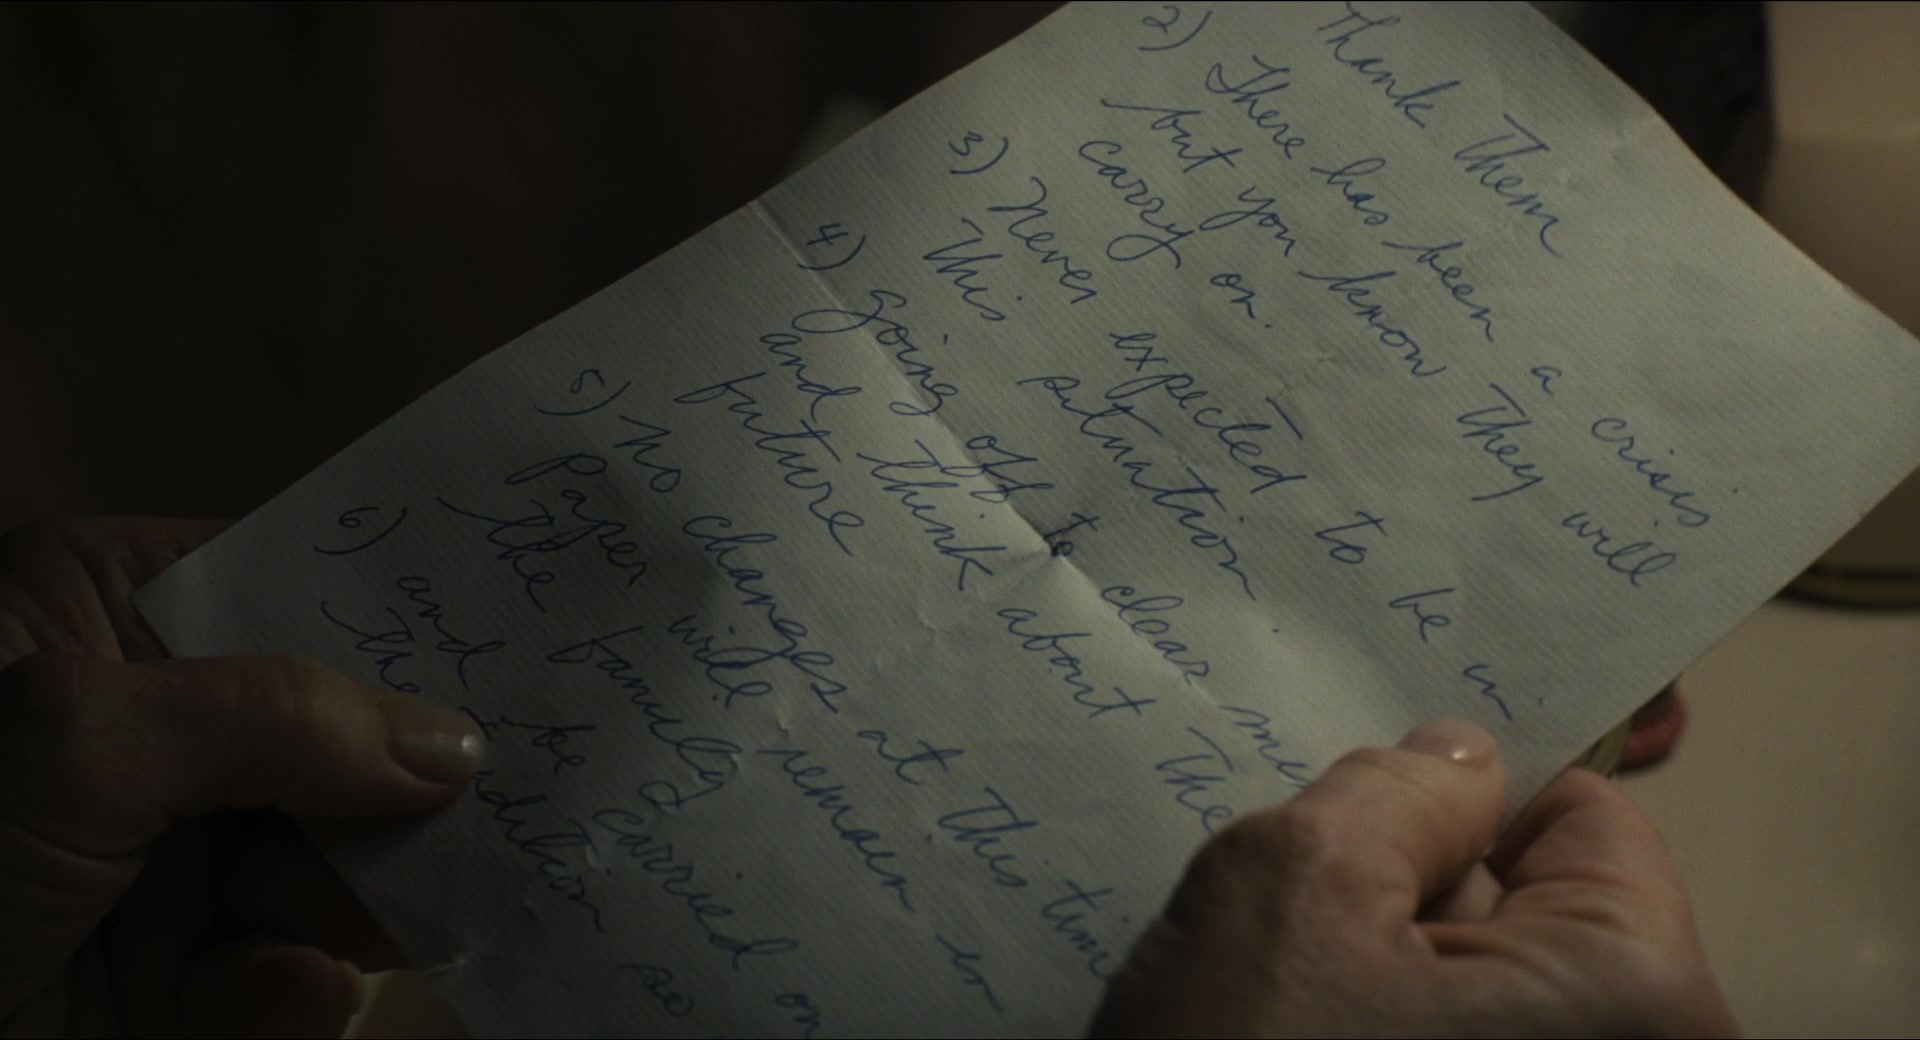 Thank Them
2) There has been a crisis
but you know They will
carry on.
3) Never expected to be in
This situation.
4) going off to clear my
and think about The
future
5) no changes at This time
Paper will remain in
the family
6) and be carried on
the
so